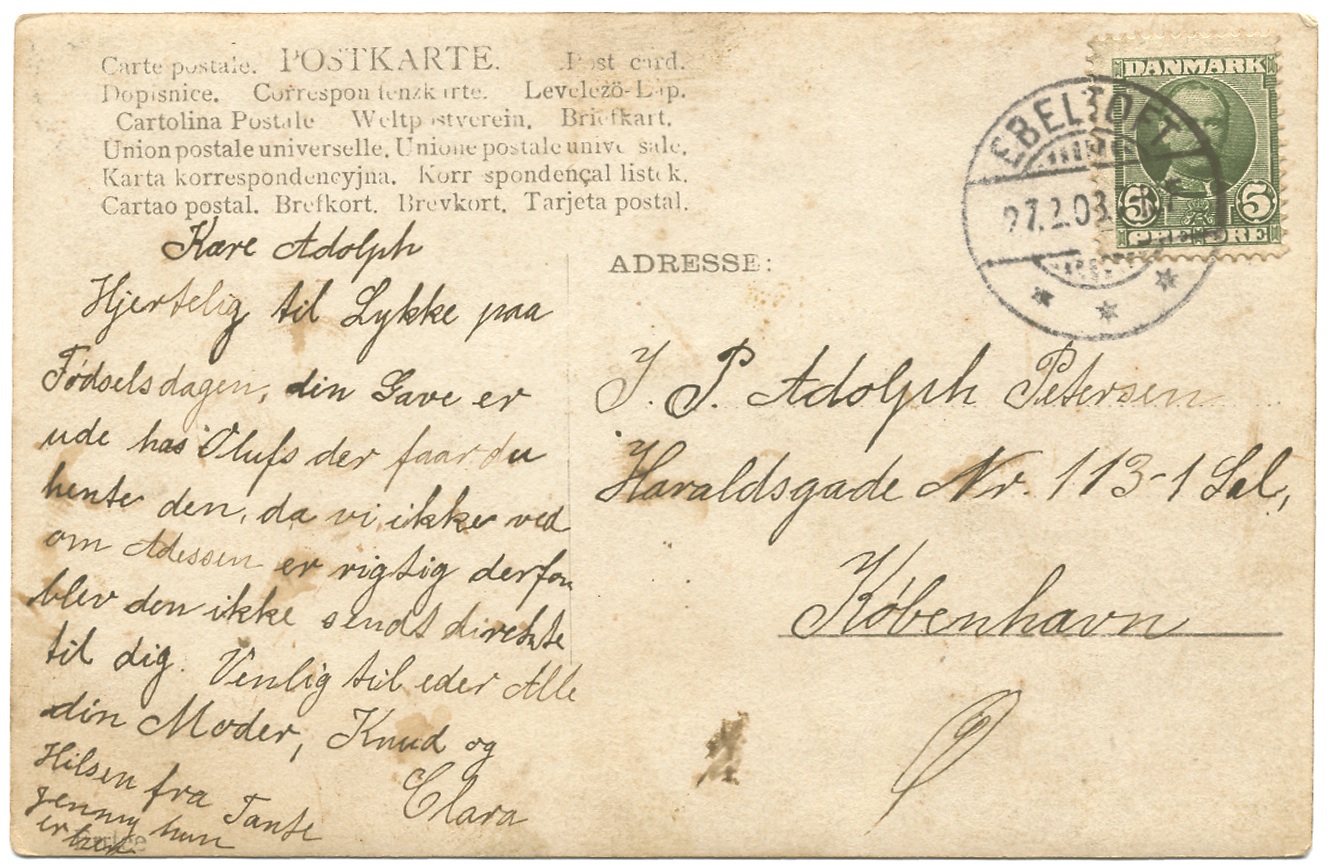 Carte postale. POSTKARTE. Post card.
Dopisnice. Correspondenzkarte. Levelező-Lap.
Cartolina Postale Weltpostverein. Briefkart.
Union postale universelle. Unione postale universale.
Karta korrespondencyjna. Korrespondençal listek.
Cartao postal. Brefkort. Brevkort. Tarjeta postal.
DANMARK
5 5
PRE ØRE
EBELTOFT
27.2.08.
ADRESSE:
Kære Adolph
Hjertelig til Lykke paa
Fødselsdagen, din Gave er
ude hos Olufs der faar du
hente den, da vi ikke ved
om Adessen er rigtig derfor
blev den ikke sendt direkte
til dig. Venlig til eder Alle
din Moder, Knud og
Clara
Hilsen fra Tante
Jenny hun
er her
J. P. Adolph Petersen
Haraldsgade Nr. 113-1 Sal,
København
Ø